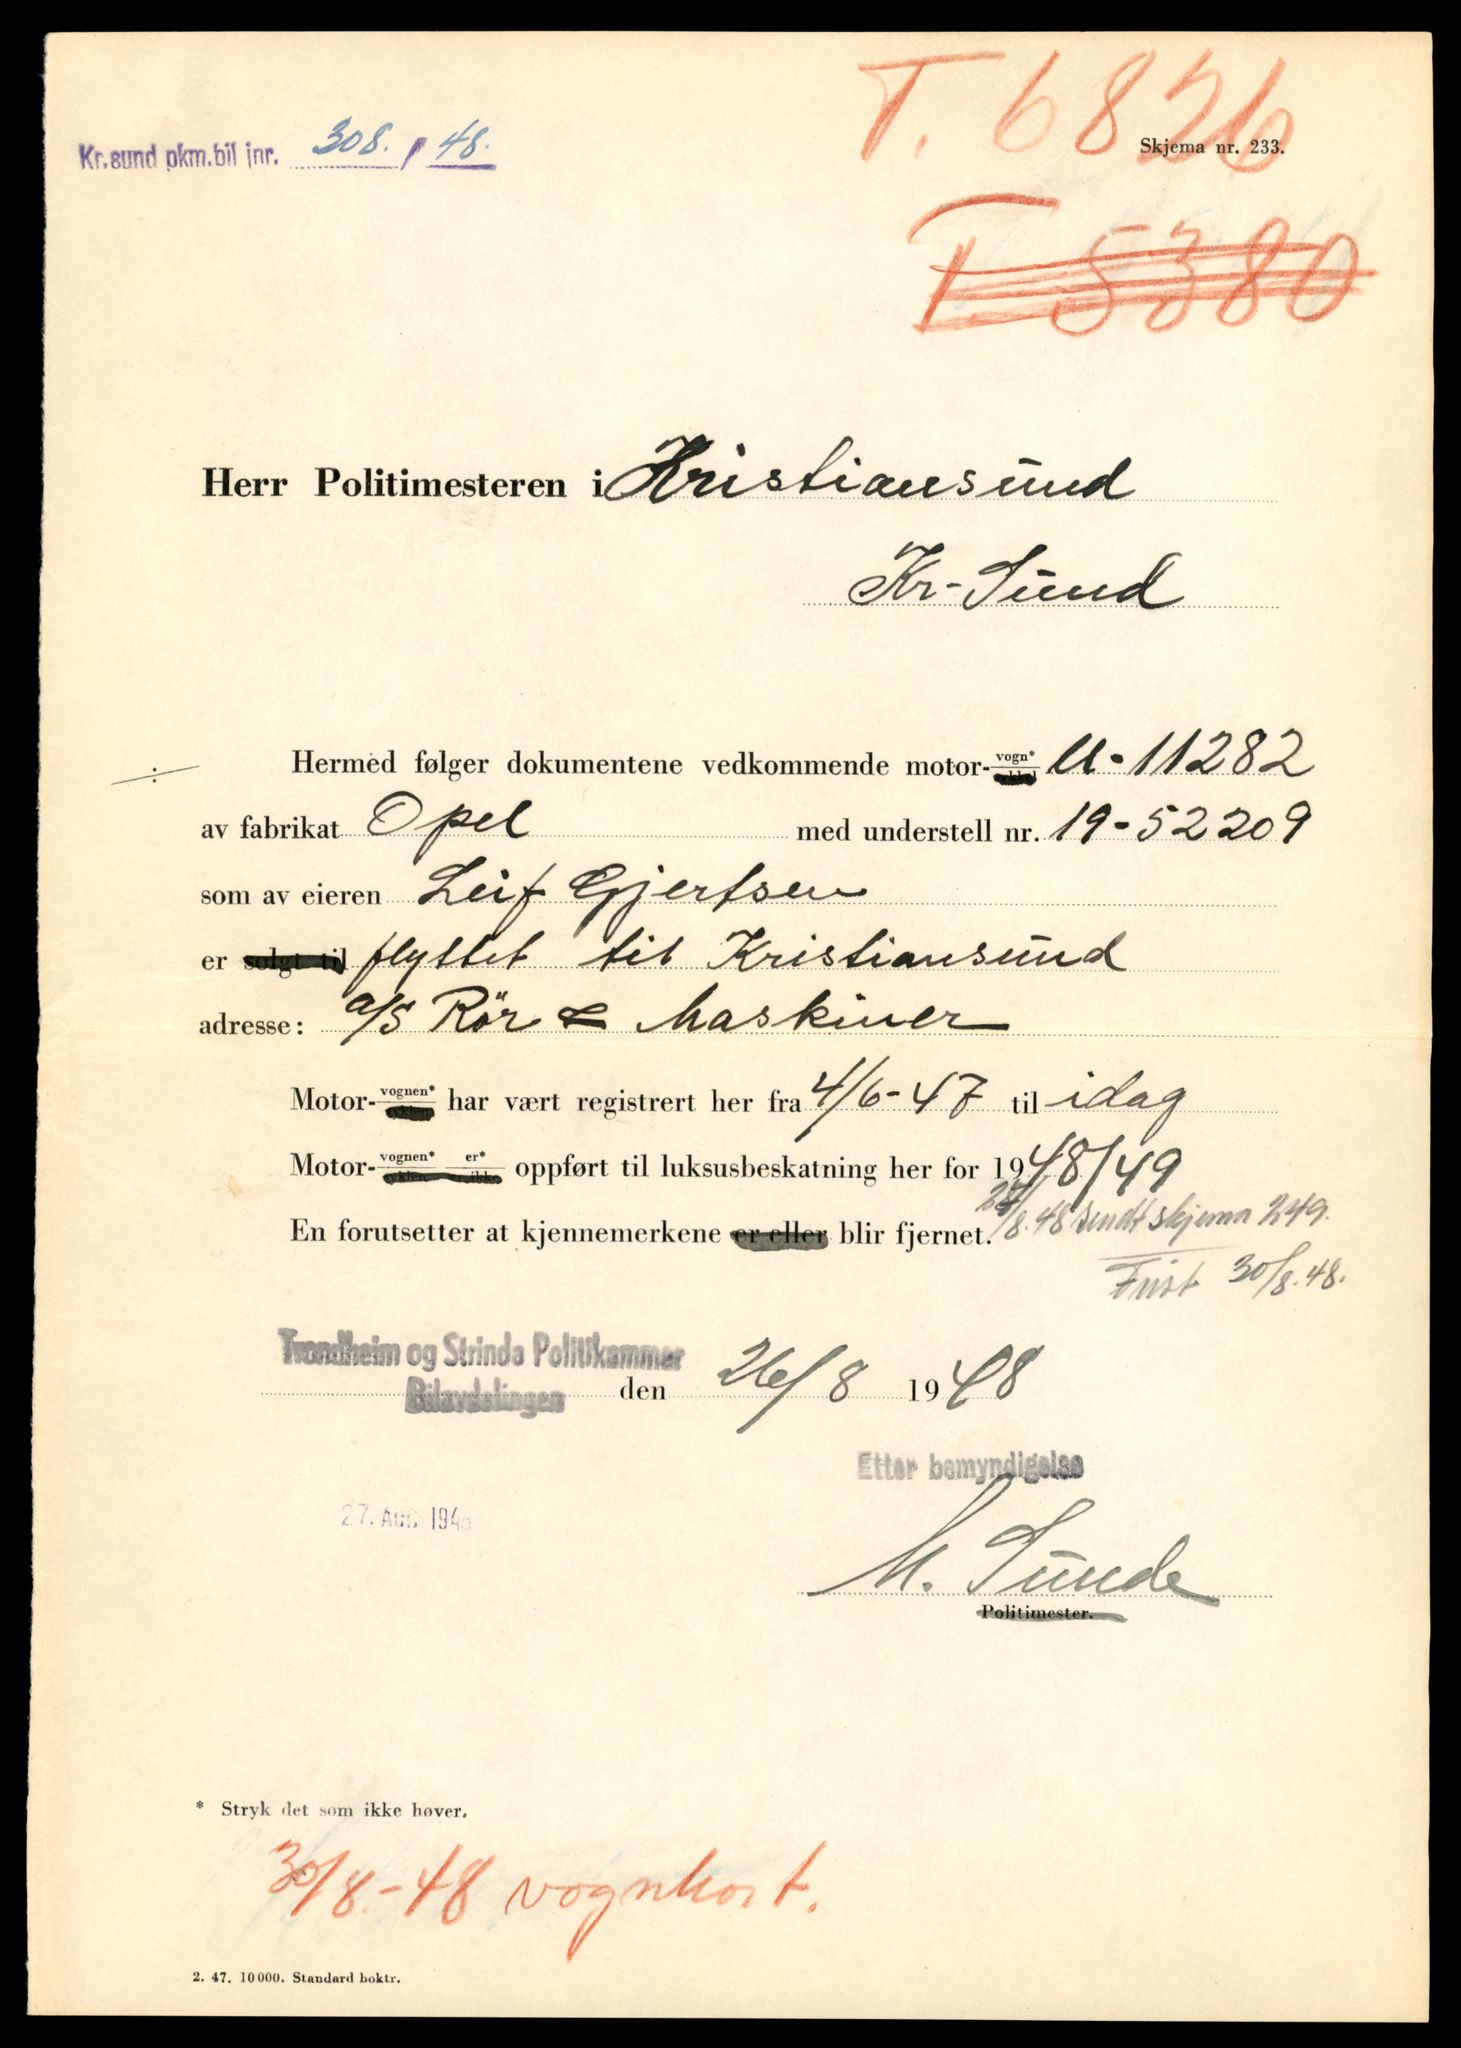 T. 6826
Kr.sund pkm.bil jnr. 308. / 48.
Skjema nr. 233.
T. 5380
Herr Politimesteren i Kristiansund
Kr-Sund
÷ Hermed følger dokumentene vedkommende motor-vogn* U-11282
av fabrikat Opel med understell nr. 19-52209
som av eieren Leif Gjertsen
er solgt til flyttet til Kristiansund
adresse: a/s Rör & Maskiner
Motor-vognen* har vært registrert her fra 4/6-47 til idag
Motor-vognen* er* ikke oppført til luksusbeskatning her for 1948/49
En forutsetter at kjennemerkene er eller blir fjernet.
28/8.48 sendt skjema 249.
Frist 30/8.48.
Trondheim og Strinda Politikammer
Bilavdelingen den 26/8 1948
Etter bemyndigelse
27. AUG 194
M. Sunde
Politimester.
* Stryk det som ikke høver.
30/8-48 vognkort.
2. 47. 10 000. Standard boktr.